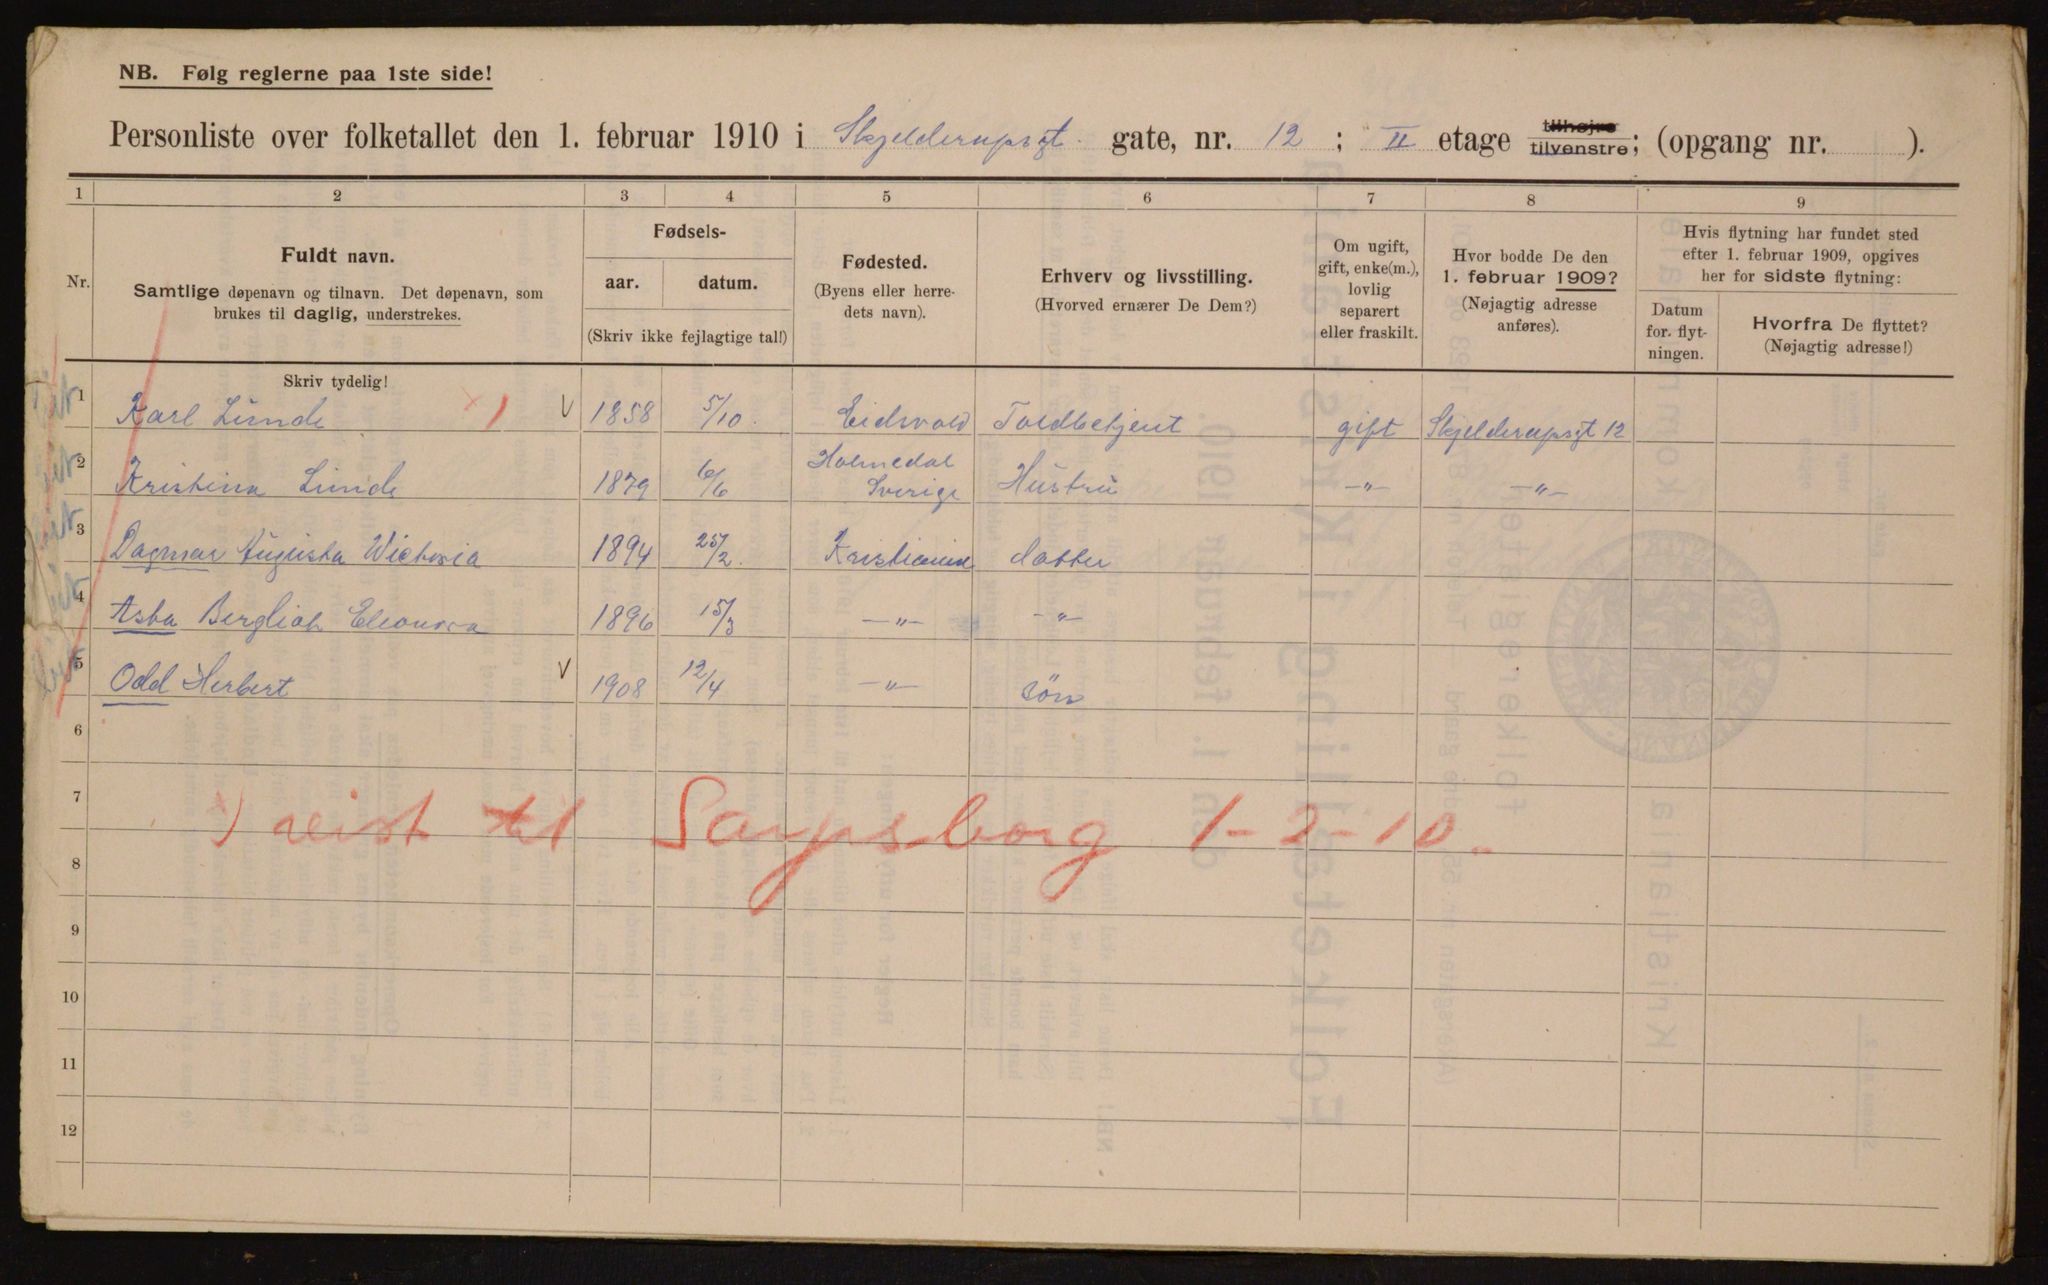 NB. Følg reglerne paa 1ste side!
Personliste over folketallet den 1. februar 1910 i Skjelderupsgt. gate, nr. 12 ; II etage tilhøjre tilvenstre; (opgang nr. ).
1 2 3 4 5 6 7 8 9
Nr.
Fuldt navn.
Samtlige døpenavn og tilnavn. Det døpenavn, som
brukes til daglig, understrekes.
Fødsels-
aar. datum.
(Skriv ikke fejlagtige tal!)
Fødested.
(Byens eller herre-
dets navn).
Erhverv og livsstilling.
(Hvorved ernærer De Dem?)
Om ugift,
gift, enke(m.),
lovlig
separert
eller fraskilt.
Hvor bodde De den
1. februar 1909?
(Nøjagtig adresse
anføres).
Hvis flytning har fundet sted
efter 1. februar 1909, opgives
her for sidste flytning:
Datum
for. flyt-
ningen.
Hvorfra De flyttet?
(Nøjagtig adresse!)
Skriv tydelig!
1 Karl Lunde x) V 1858 5/10. Eidsvold Toldbetjent gift Skjelderupsgt 12
2 Kristina Lunde 1879 6/6 Holmedal Sverige Hustru —"— —"—
3 Dagmar Augusta Wictoria 1894 25/2. Kristiania datter
4 Asta Bergliot Eleonora 1896 15/3 —"— —"—
5 Odd Herbert V 1908 12/4 —"— søn
6
7
x) reist til Sarpsborg 1-2-10.
8
9
10
11
12